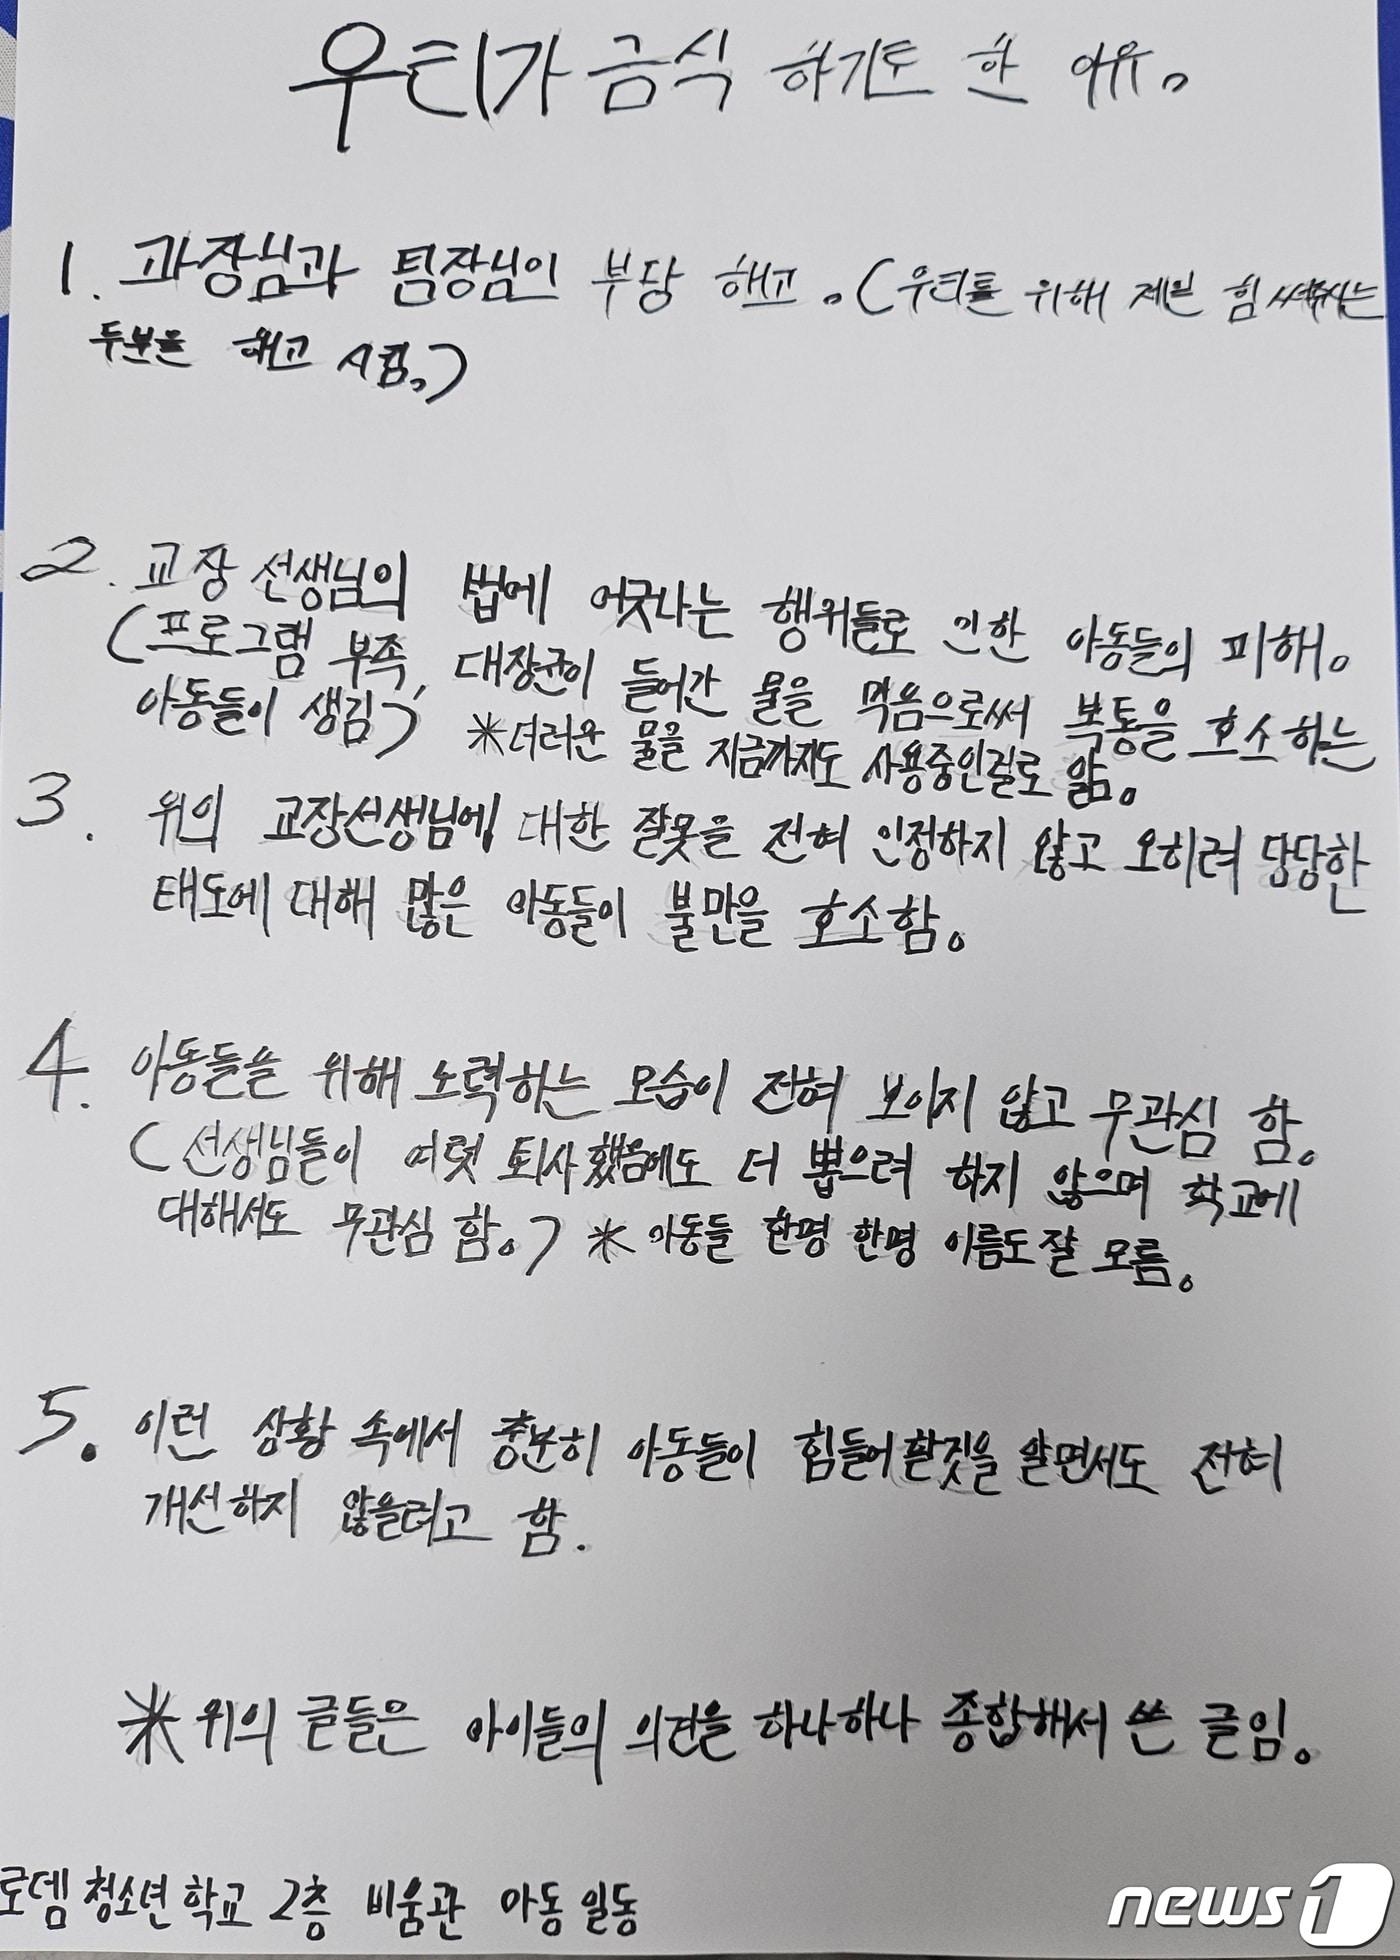 우리가 금식 하기도 한 이유.
1. 과장님과 팀장님의 부당 해고. (우리를 위해 제일 힘 써주시는
두분을 해고 시킴.)
2. 교장 선생님의 법에 어긋나는 행위들로 인한 아동들의 피해.
(프로그램 부족, 대장균이 들어간 물을 먹음으로써 복통을 호소하는
아동들이 생김) ※더러운 물을 지금까지도 사용중인걸로 앎.
3. 위의 교장선생님에 대한 잘못을 전혀 인정하지 않고 오히려 당당한
태도에 대해 많은 아동들이 불만을 호소함.
4. 아동들을 위해 노력하는 모습이 전혀 보이지 않고 무관심 함.
(선생님들이 여럿 퇴사했음에도 더 뽑으려 하지 않으며 학교에
대해서도 무관심 함.) ※ 아동들 한명 한명 이름도 잘 모름.
5. 이런 상황 속에서 충분히 아동들이 힘들어할짓을 알면서도 전혀
개선하지 않을려고 함.
※ 위의 글들은 아이들의 의견을 하나하나 종합해서 쓴 글임.
로뎀 청소년 학교 2층 비움관 아동 일동
news1